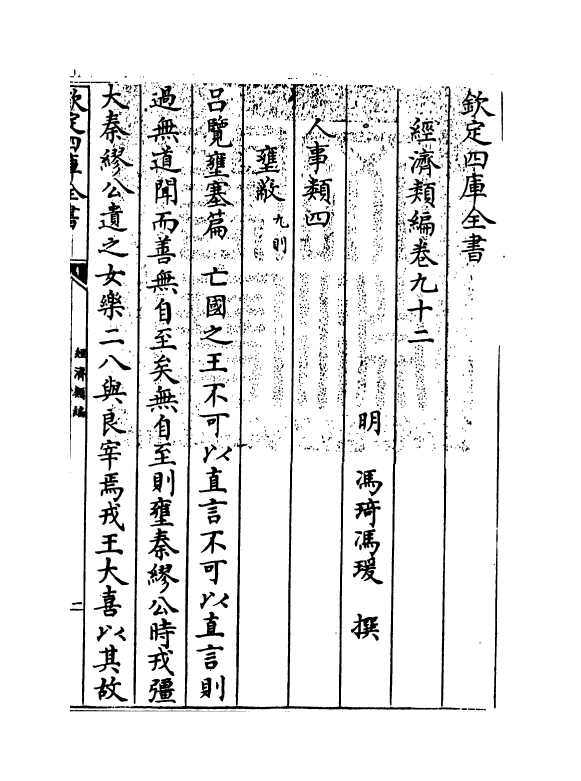 欽定四庫全書
經濟類編卷九十二
明 馮琦馮瑗 撰
人事類四
壅蔽九則
呂覽壅塞篇 亡國之王不可以直言不可以直言則
過無道聞而善無自至矣無自至則壅秦繆公時戎彊
大秦繆公遺之女樂二八與良宰焉戎王大喜以其故
欽定四庫全書
經濟類編
二